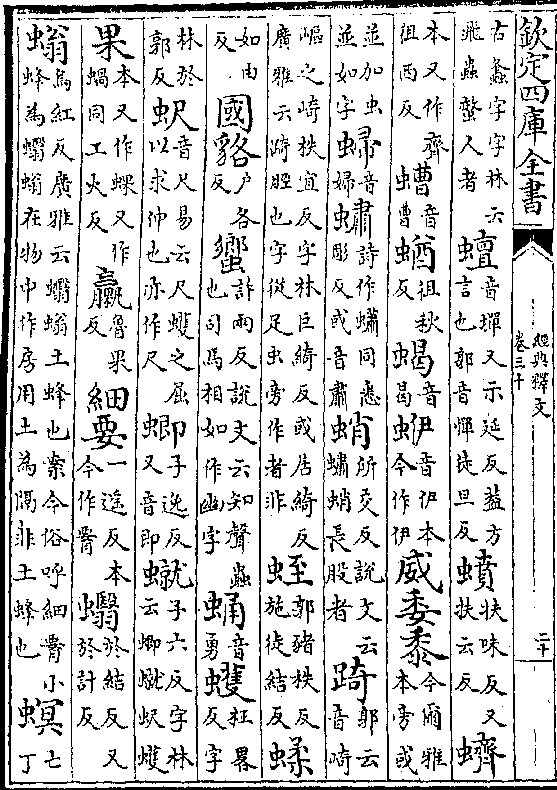 欽定四庫全書
經典釋文
卷三十
二十
古蠭字字林云飛蟲螫人者蟺音墠又示延反益方言也郭音憚徒旦反蟦扶味反又扶云反蠐
本又作齊祖西反螬音曹蝤祖秋反蝎音曷蛜音伊本今作伊威委黍今爾雅本旁或
並加虫並如字音婦蟰詩作蠨同悉彫反或音肅蛸所交反說文云蠨蛸長股者踦郭云音崎
嶇之崎秩宜反字林巨綺反或居綺反廣雅云踦脛也字從足虫旁作者非蛭郭豬秩反施徒結反蝚
如由反國貉户各反蠁許兩反說文云知聲蟲也司馬相如作字蛹音勇蠖枉畧反字
林於郭反蚇音尺易云尺蠖之屈以求伸也亦作尺蝍子逸反又音即䗇子六反字林云蝍䗇蚇蠖
果本又作蜾又作蝸同工火反蠃魯果反細要一遥反本今作𦝫蠮於結反又於計反
螉烏紅反廣雅云蠮螉土蜂也案今俗呼細𦝫小蜂為蠮螉在物中作房用土為隔非土蜂也螟亡丁